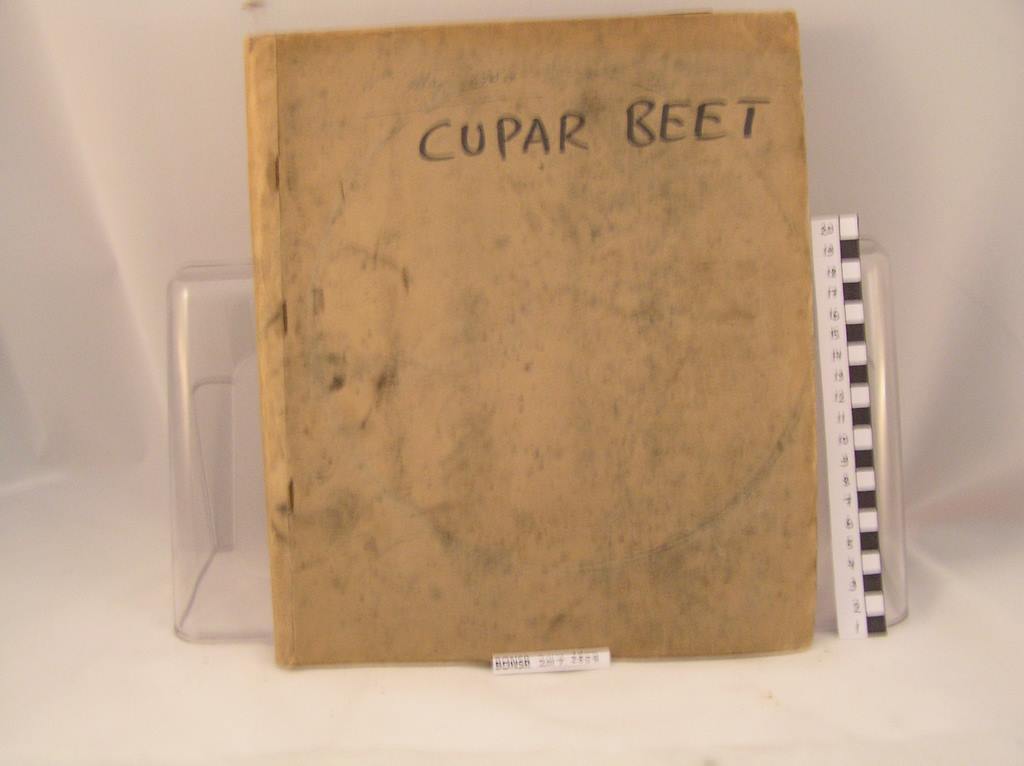 CUPAR BEET
20
19
18
17
16
15
14
13
12
11
10
9
8
7
6
5
4
3
2
1
BDNSB